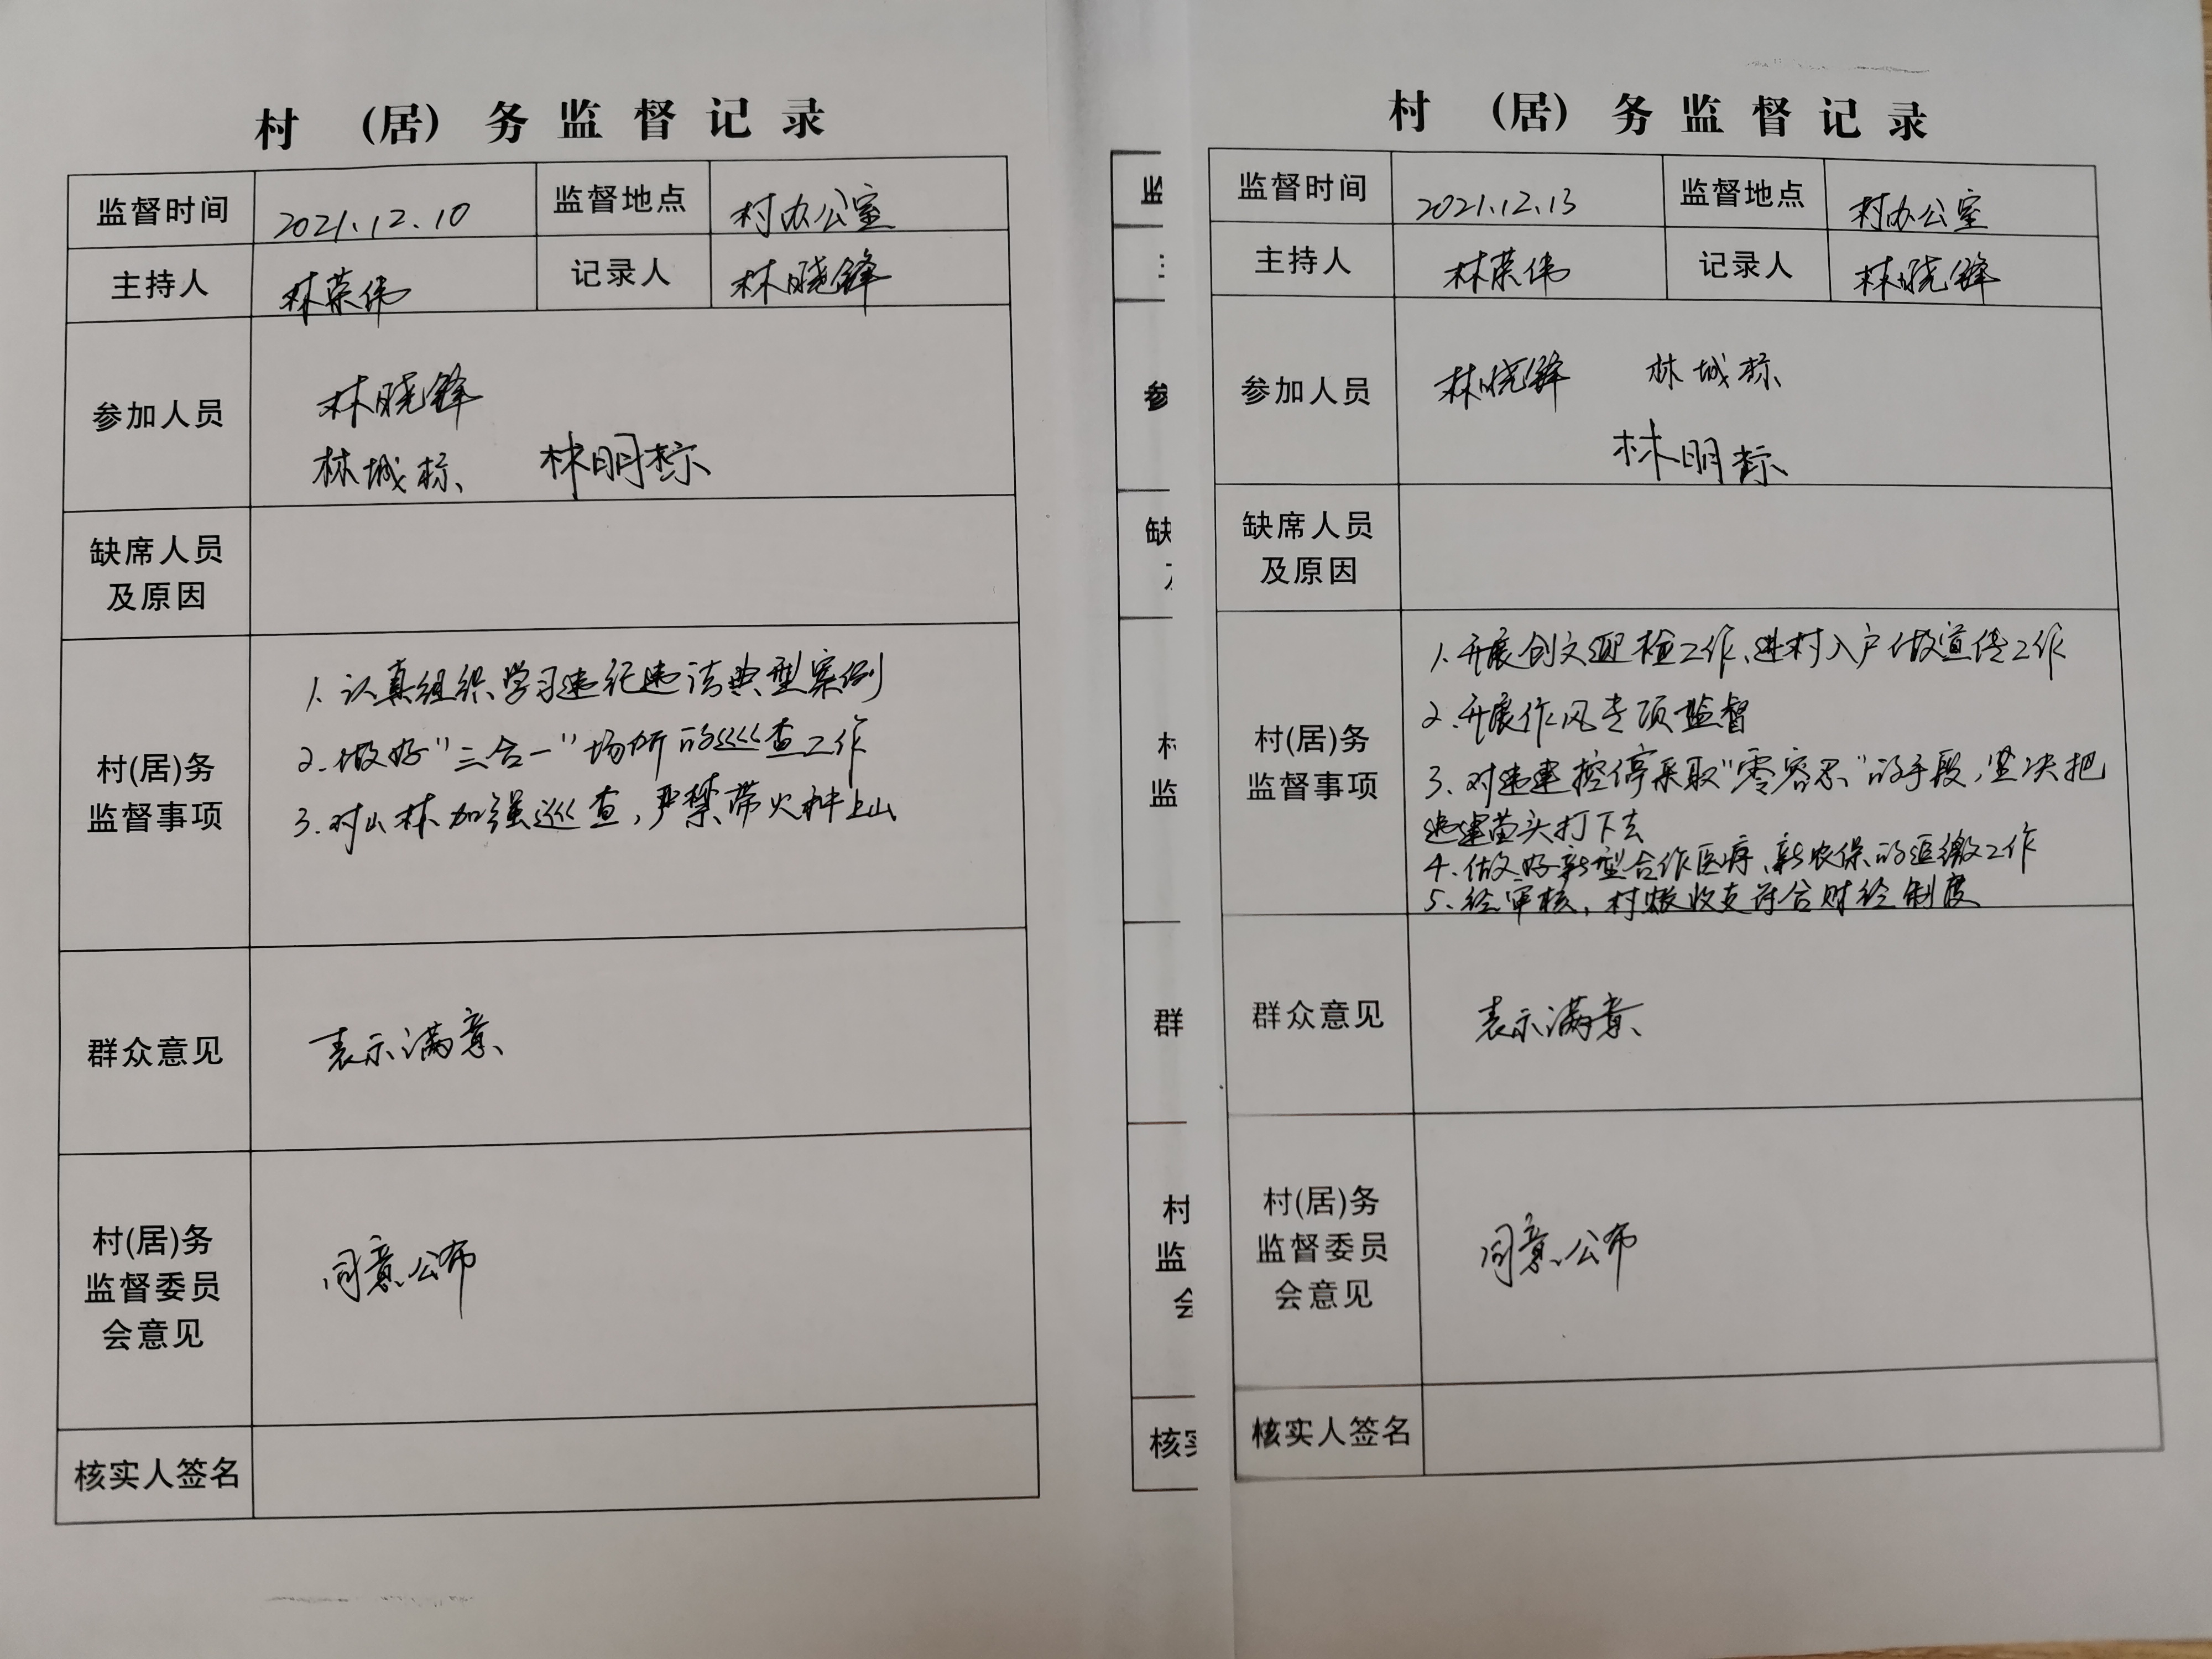 村 (居) 务监督记录
监督时间 2021.12.10 监督地点 村办公室
主持人 林荣伟 记录人 林晓锋
参加人员
林晓锋
林城标 林明标
缺席人员
及原因
村(居)务
监督事项
1.认真组织学习违纪违法典型案例
2.做好“三合一”场所的巡查工作
3.对山林加强巡查,严禁带火种上山
群众意见 表示满意
村(居)务
监督委员
会意见
同意公布
核实人签名
参
缺
村
监
群
村
监
会
核实
村 (居) 务监督记录
监督时间 2021.12.13 监督地点 村办公室
主持人 林荣伟 记录人 林晓锋
参加人员
林晓锋 林城标
林明标
缺席人员
及原因
村(居)务
监督事项
1.开展创文迎检工作、进村入户做宣传工作
2.开展作风专项监督
3.对违建控停采取“零容忍”的手段,坚决把
违建苗头打下去
4.做好新型合作医疗、新农保的追缴工作
5.经审核,村账收支符合财经制度
群众意见 表示满意
村(居)务
监督委员
会意见
同意公布
核实人签名